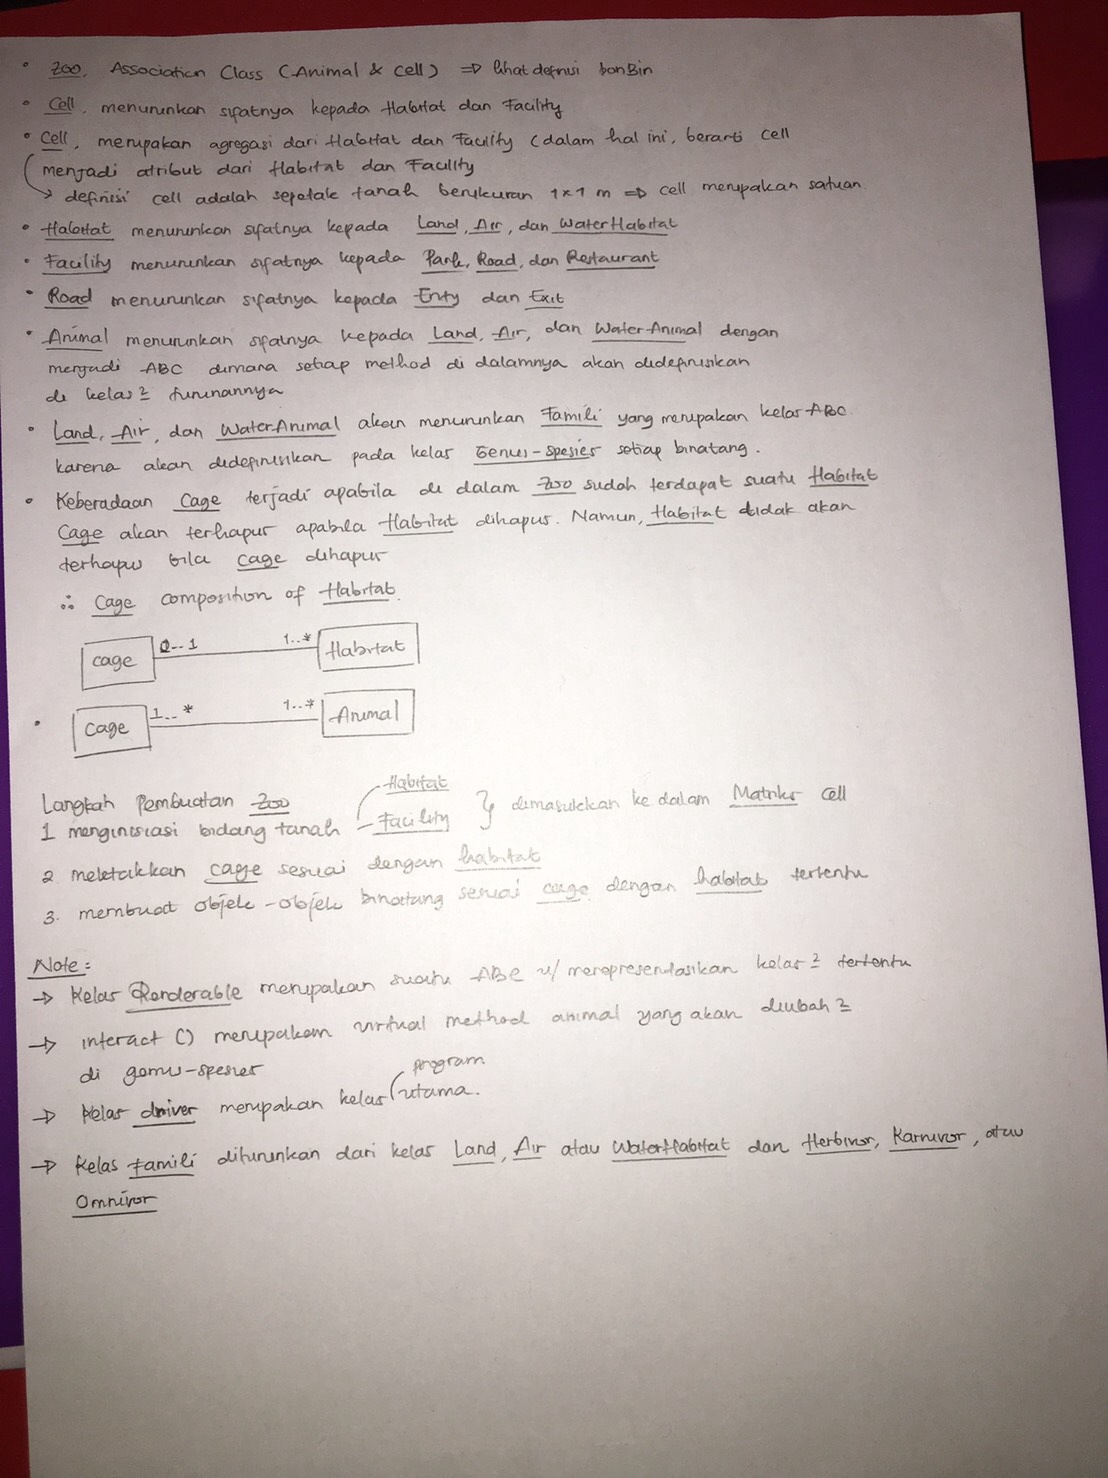 • Zoo, Association Class (Animal & Cell) => lihat definisi bonBin
• Cell, menurunkan sifatnya kepada Habitat dan Facility
• Cell, merupakan agregasi dari Habitat dan Facility (dalam hal ini, berarti cell
menjadi atribut dari Habitat dan Facility
→ definisi cell adalah sepetak tanah berukuran 1x1 m => cell merupakan satuan.
• Habitat menurunkan sifatnya kepada Land, Air, dan WaterHabitat
• Facility menurunkan sifatnya kepada Park, Road, dan Restaurant
• Road menurunkan sifatnya kepada Enty dan Exit
• Animal menurunkan sifatnya kepada Land, Air, dan Water Animal dengan
menjadi ABC dimana setiap method di dalamnya akan didefinisikan
di kelas2 turunannya
• Land, Air, dan WaterAnimal akan menurunkan Famili yang merupakan kelas ABC
karena akan didefinisikan pada kelas Genus-spesies setiap binatang.
• Keberadaan Cage terjadi apabila di dalam Zoo sudah terdapat suatu Habitat
Cage akan terhapus apabila Habitat dihapus. Namun, Habitat tidak akan
terhapus bila cage dihapus
∴ Cage composition of Habitat.
cage 0..1 1..* Habitat
• Cage 1..* 1..* Animal
Langkah Pembuatan Zoo
1 menginisiasi bidang tanah Habitat Facility } dimasukkan ke dalam Matriks cell
2 meletakkan cage sesuai dengan habitat
3. membuat objek-objek binatang sesuai cage dengan habitat tertentu
Note:
→ Kelas Renderable merupakan suatu ABC u/ merepresentasikan kelas2 tertentu
→ interact () merupakan virtual method animal yang akan diubah2
di genus-spesies
→ Kelas driver merupakan kelas program utama.
→ Kelas Famili diturunkan dari kelas Land, Air atau WaterHabitat dan Herbivor, Karnivor, atau
Omnivor